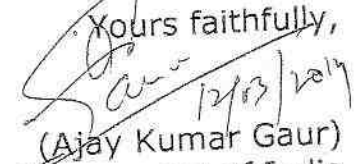 Yours faithfully,
12/03/2019
(Ajay Kumar Gaur)